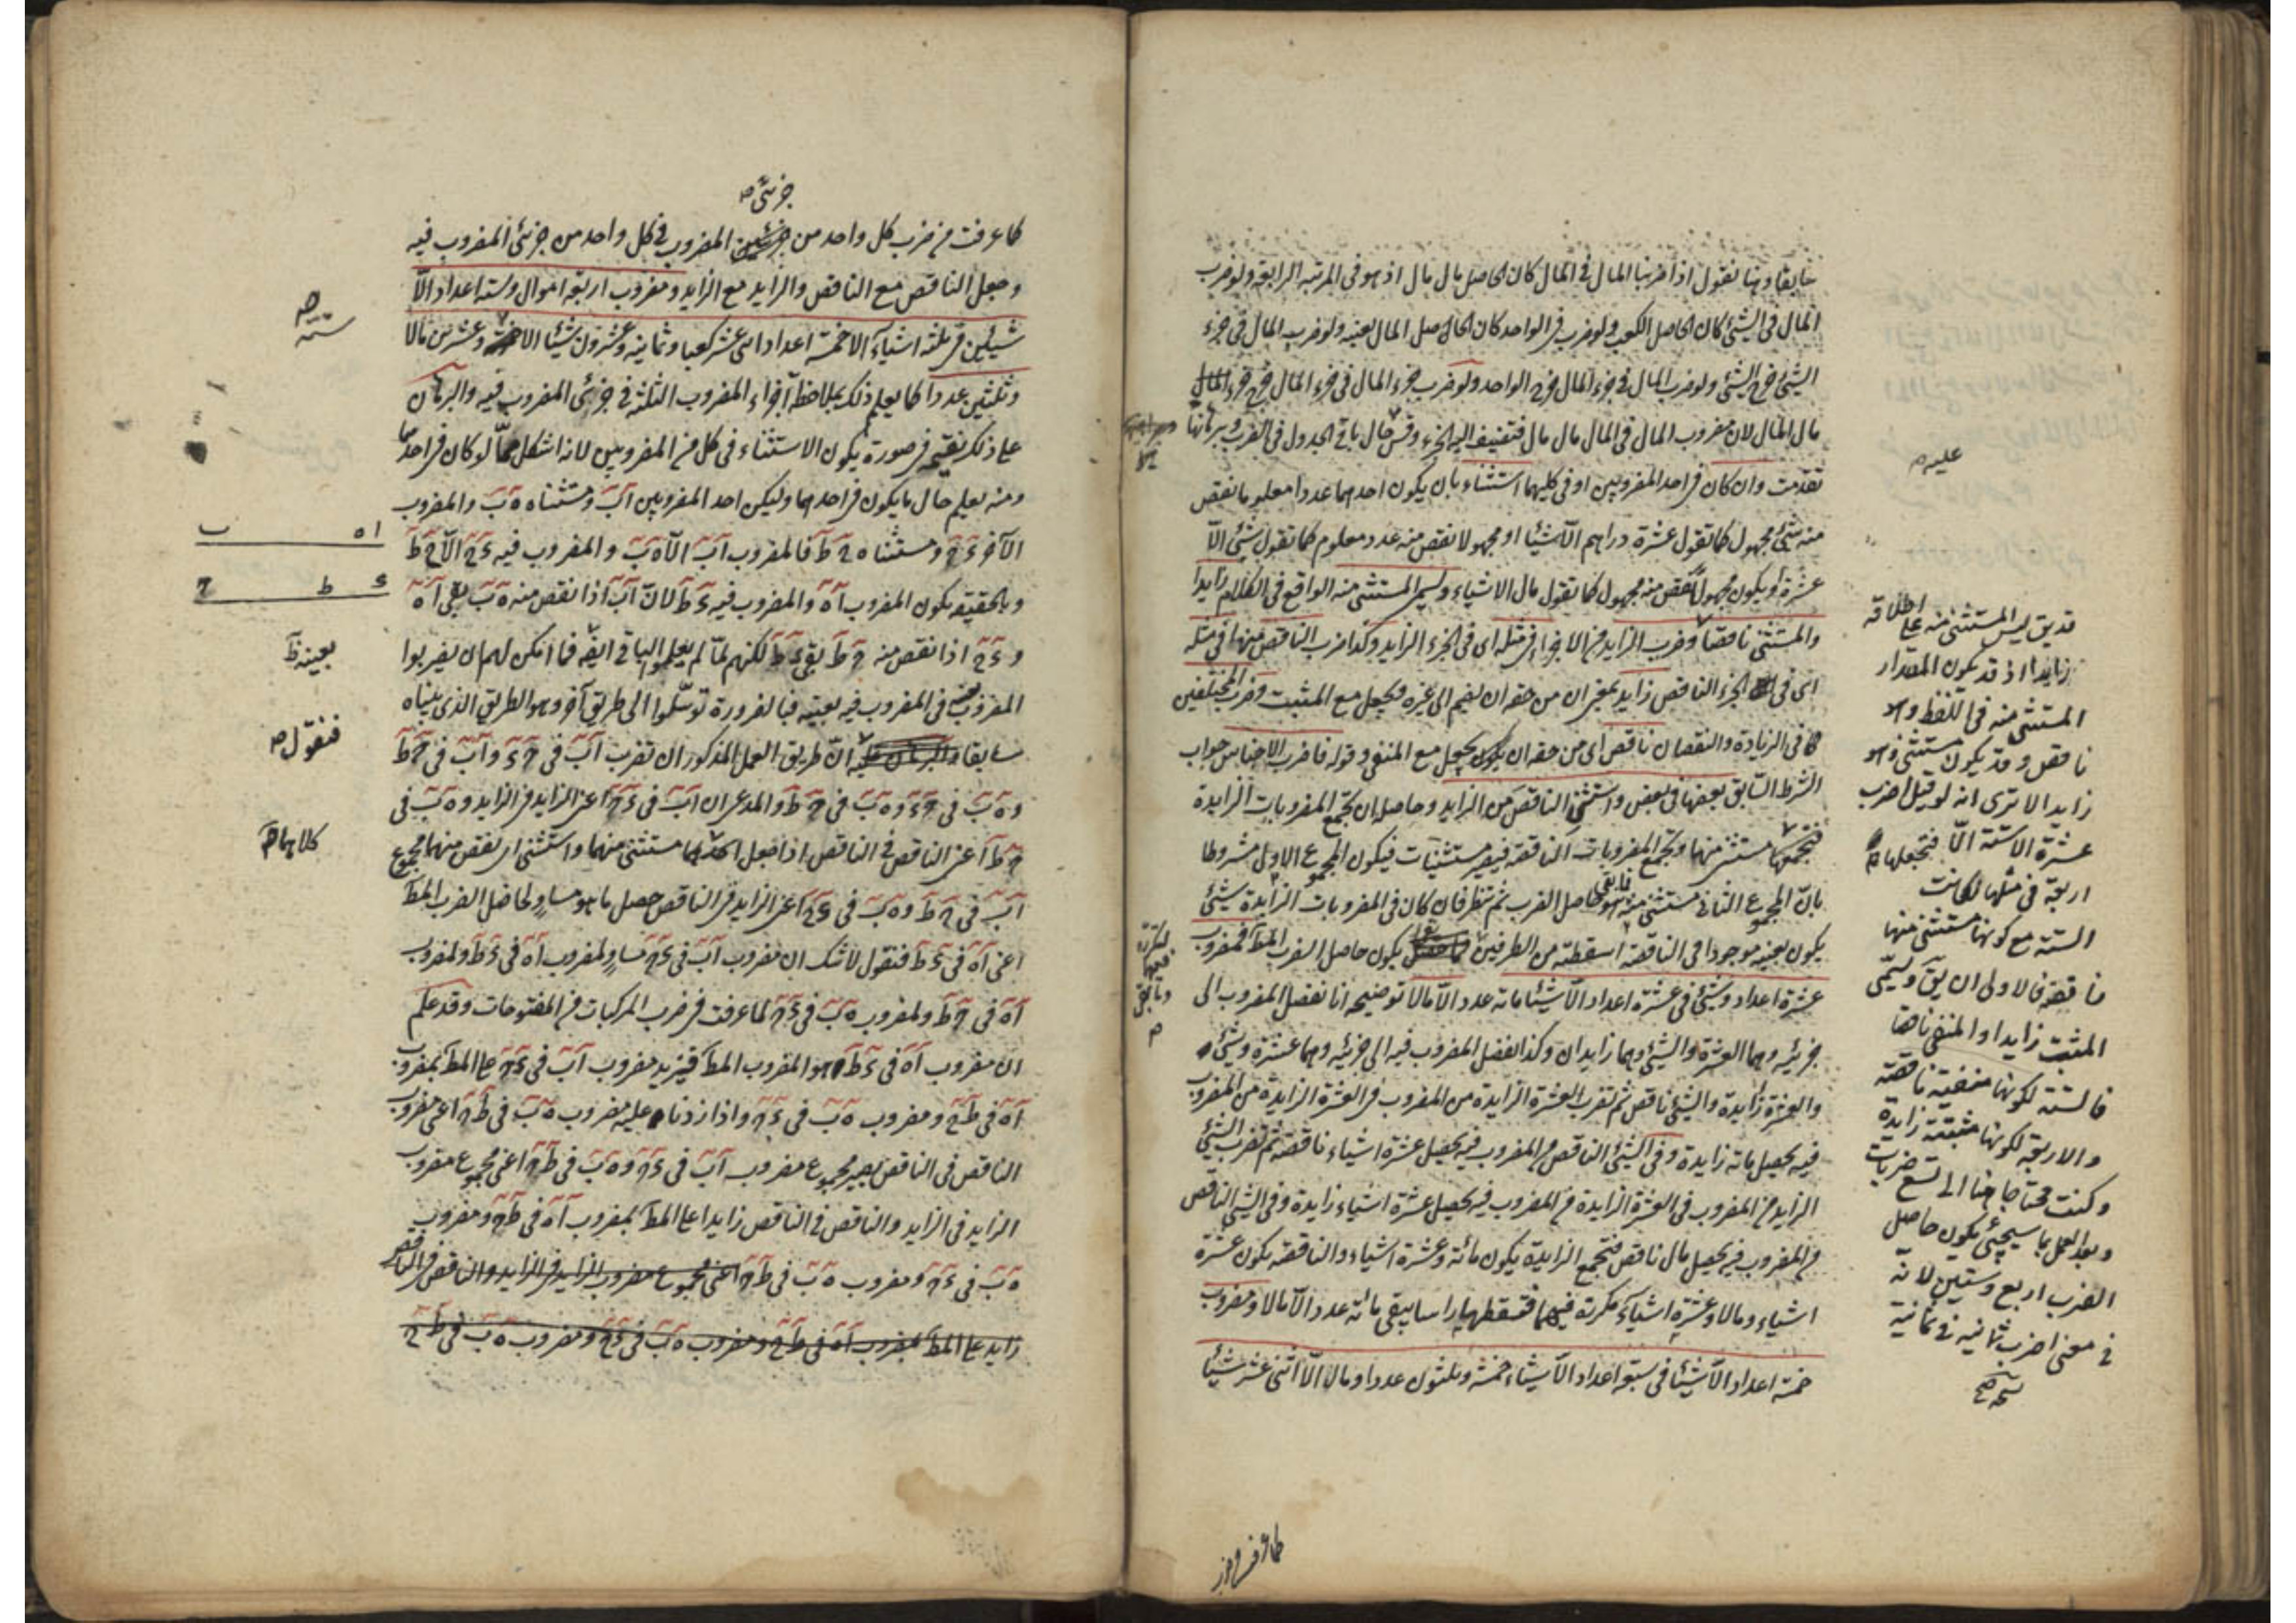 سابقا وبها نقول اذا ضربنا المال في المال كان الحاصل مال مال اذ هو في المرتبة الرابعة ولو ضرب
المال في الشئ كان الحاصل الكعب ولو ضرب في الواحد كان الحاصل المال بعينه ولو ضرب المال في جزء
الشئ خرج الشئ ولو ضرب المال في جزء المال خرج الواحد ولو ضرب جزء المال في جزء المال خرج جزء
مال المال لان مضروب المال في المال مال مال فتضيف اليه الجزء وقس حال باقي الجدول في الضرب وبرهانها
تقدمت وان كان في احد المضروبين او في كليهما استثناء بان يكون احدهما عددا معلوما نقص
منه شئ مجهول كما تقول عشرة دراهم الا شيئا او مجهولا نقص منه عدد معلوم كما تقول شئ الا
عشرة او يكون مجهولا نقص منه مجهول كما تقول مال الا شياء وليسم المستثنى منه الواقع في الكلام زايدا
والمستثنى ناقصا وضرب الزايد من الاجزاء في مثله اى في الجزء الزايد وكذا ضرب الناقص منها في مثله
اى في الجزء الناقص زايد بمعنى ان من حقه ان يضم الى غيره فيجعل مع المثبت وضرب المختلفين
في الزيادة والنقصان ناقص اى من حقه ان يجعل مع المنفى وقوله فاضرب الاجناس جواب
الشرط السابق بعضها في بعض واستثنى الناقص من الزايد وحاصله ان تجمع المضروبات الزايدة
فتجعلها مستثنى منها وتجمع المضروبات الناقصة فيصير مستثنيات فيكون المجموع الاول مشروطا
بان المجموع الثاني مستثنى منه فما بقى فهو حاصل الضرب ثم تنظر فان كان في المضروبات الزايدة شئ
يكون بعينه موجودا في الناقصة اسقطته من الطرفين يكون حاصل الضرب المط فمضروب
عشرة اعداد وشئ في عشرة اعداد الا شيئا مائة عدد الا مالا توضيحه انا نفصل المضروب الى
جزئيه وهما العشرة والشئ وهما زايدان وكذا نفصل المضروب فيه الى جزئيه وهما عشرة وشئ
والعشرة زايدة والشئ ناقص ثم تضرب العشرة الزايدة من المضروب في العشرة الزايدة من المضروب
فيه يحصل مائة زايدة وفي الشئ الناقص من المضروب فيه يحصل عشرة اشياء ناقصة ثم تضرب الشئ
الزايد من المضروب في العشرة الزايدة من المضروب فيه يحصل عشرة اشياء زايدة وفي الشئ الناقص
من المضروب فيه يحصل مال ناقص فتجمع الزايدة يكون مائة وعشرة اشياء والناقصة يكون عشرة
اشياء ومالا وعشرة اشياء مكررة فيهما فتسقطها راسا يبقى مائة عدد الا مالا ومضروب
خمسة اعداد الا شيئا في سبعة اعداد الا شيئا خمسة وثلثون عددا ومال الا اثنى عشر شيئا
عليه م
قد يق ليس المستثنى منه على اطلاقه
زايدا اذ قد يكون المقدار
المستثنى منه في اللفظ وهو
ناقص وقد يكون مستثنى وهو
زايد الا ترى انه لو قيل اضرب
عشرة الا ستة الا
اربعة في مثلها لكانت
الستة مع كونها مستثنى منها
ناقصة فالاولى ان يق وليسمى
المثبت زايدا والمنفى ناقصا
فالستة لكونها منفية ناقصة
والاربعة لكونها مثبتة زايدة
وكنت محتاجا هنا الى تسع ضربات
وبعد العمل بما سيجئ يكون حاصل
الضرب اربع وستين لانه
في معنى اضرب ثمانية في ثمانية
جزئى ص
كما عرفت من ضرب كل واحد من المضروب في كل واحد من جزئى المضروب فيه
وجعل الناقص مع الناقص والزايد مع الزايد ومضروب اربعة اموال وستة اعداد الا
شيئين في ثلثة اشياء الا خمسة اعداد اثنى عشر كعبا وثمانية وعشرون شيئا الا وعشرين مالا
وثلثين عددا كما يعلم ذلك بملاحظة اجزاء المضروب الثلثة في جزئى المضروب فيه والبرهان
على ذلك نقيمه في صورة يكون الاستثناء في كل من المضروبين لانه اشكل مما لو كان في احدهما
ومنه يعلم حال ما يكون في احدهما وليكن احد المضروبين اب ومستثناه ه ب والمضروب
الآخر ء ح ومستثناه ح ط فالمضروب اب الا ه ب والمضروب فيه ء ح الا ح ط
وبالحقيقة يكون المضروب ا ه والمضروب فيه ء ط لان اب اذا نقص منه ه ب بقى ا ه
و ء ح اذا نقص منه ح ط بقى ء ط لكنهم لما لم يعلموا الباقى ايضا فما امكن لهم ان يضربوا
المضروب في المضروب فيه بعينه فبالضرورة توسلوا الى طريق آخر وهو الطريق الذى بيناه
سابقا ان طريق العمل المذكور ان تضرب اب في ح ء و اب في ح ط
و ه ب في ح ء و ه ب في ح ط والمدعى ان اب في ء ح اعنى الزايد في الزايد و ه ب في
ح ط اعنى الناقص في الناقص اذا جعل مستثنى منهما واستثنى اى نقص منهما مجموع
اب في ح ط و ه ب في ء ح اعنى الزايد في الناقص حصل ما هو مساو لحاصل الضرب المط
اعنى ا ه في ء ط فنقول لا شك ان مضروب اب في ء ح مساو لمضروب ا ه في ء ط ولمضروب
ا ه في ح ط ولمضروب ه ب في ء ح لما عرفت في ضرب المركبات من المفتوحات وقد علم
ان مضروب ا ه في ء ط هو المضروب المط فيزيد مضروب اب في ء ح على المط بمضروب
ا ه في ط ح ومضروب ه ب في ء ح واذا زدنا عليه مضروب ه ب في ط ح اعنى مضروب
الناقص في الناقص يصير مجموع مضروب اب في ء ح و ه ب في ط ح اعنى مجموع مضروب
الزايد في الزايد والناقص في الناقص زايدا على المط بمضروب ا ه في ط ح ومضروب
ه ب في ء ح ومضروب ه ب في ط ح اعنى مجموع مضروب الزايد في الزايد والناقص في الناقص
زايد على المط بمضروب ا ه في ط ح ومضروب ه ب في ء ح ومضروب ه ب في ط ح
ستة
ا ه ب
ء ط ح
بعينه
فنقول ص
كلاهما